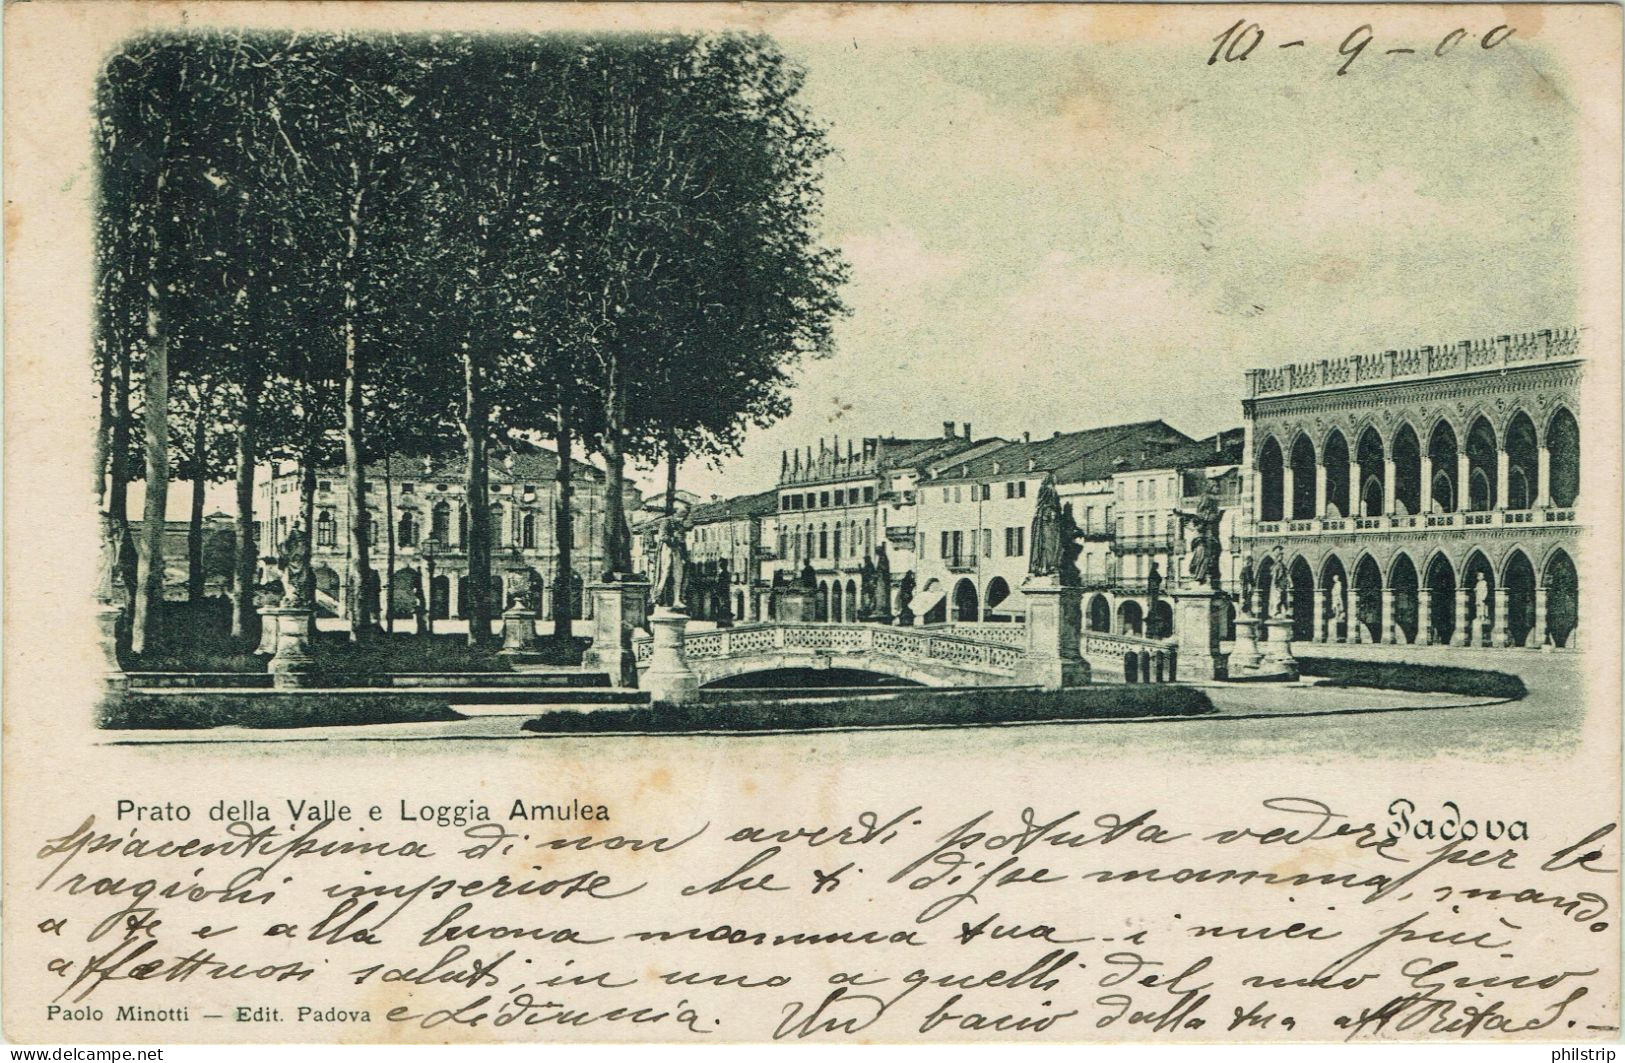 10-9-00
Prato della Valle e Loggia Amulea
Padova
spiacentissima di non averti potuta vedere per le
ragioni imperiose che ti disse mamma, mando
a te e alla buona mamma tua i miei più
affettuosi saluti, in uno a quelli del mio Gino
Paolo Minotti — Edit. Padova
e Lidiuccia. Un bacio dalla tua aff Rita S.
philstrip